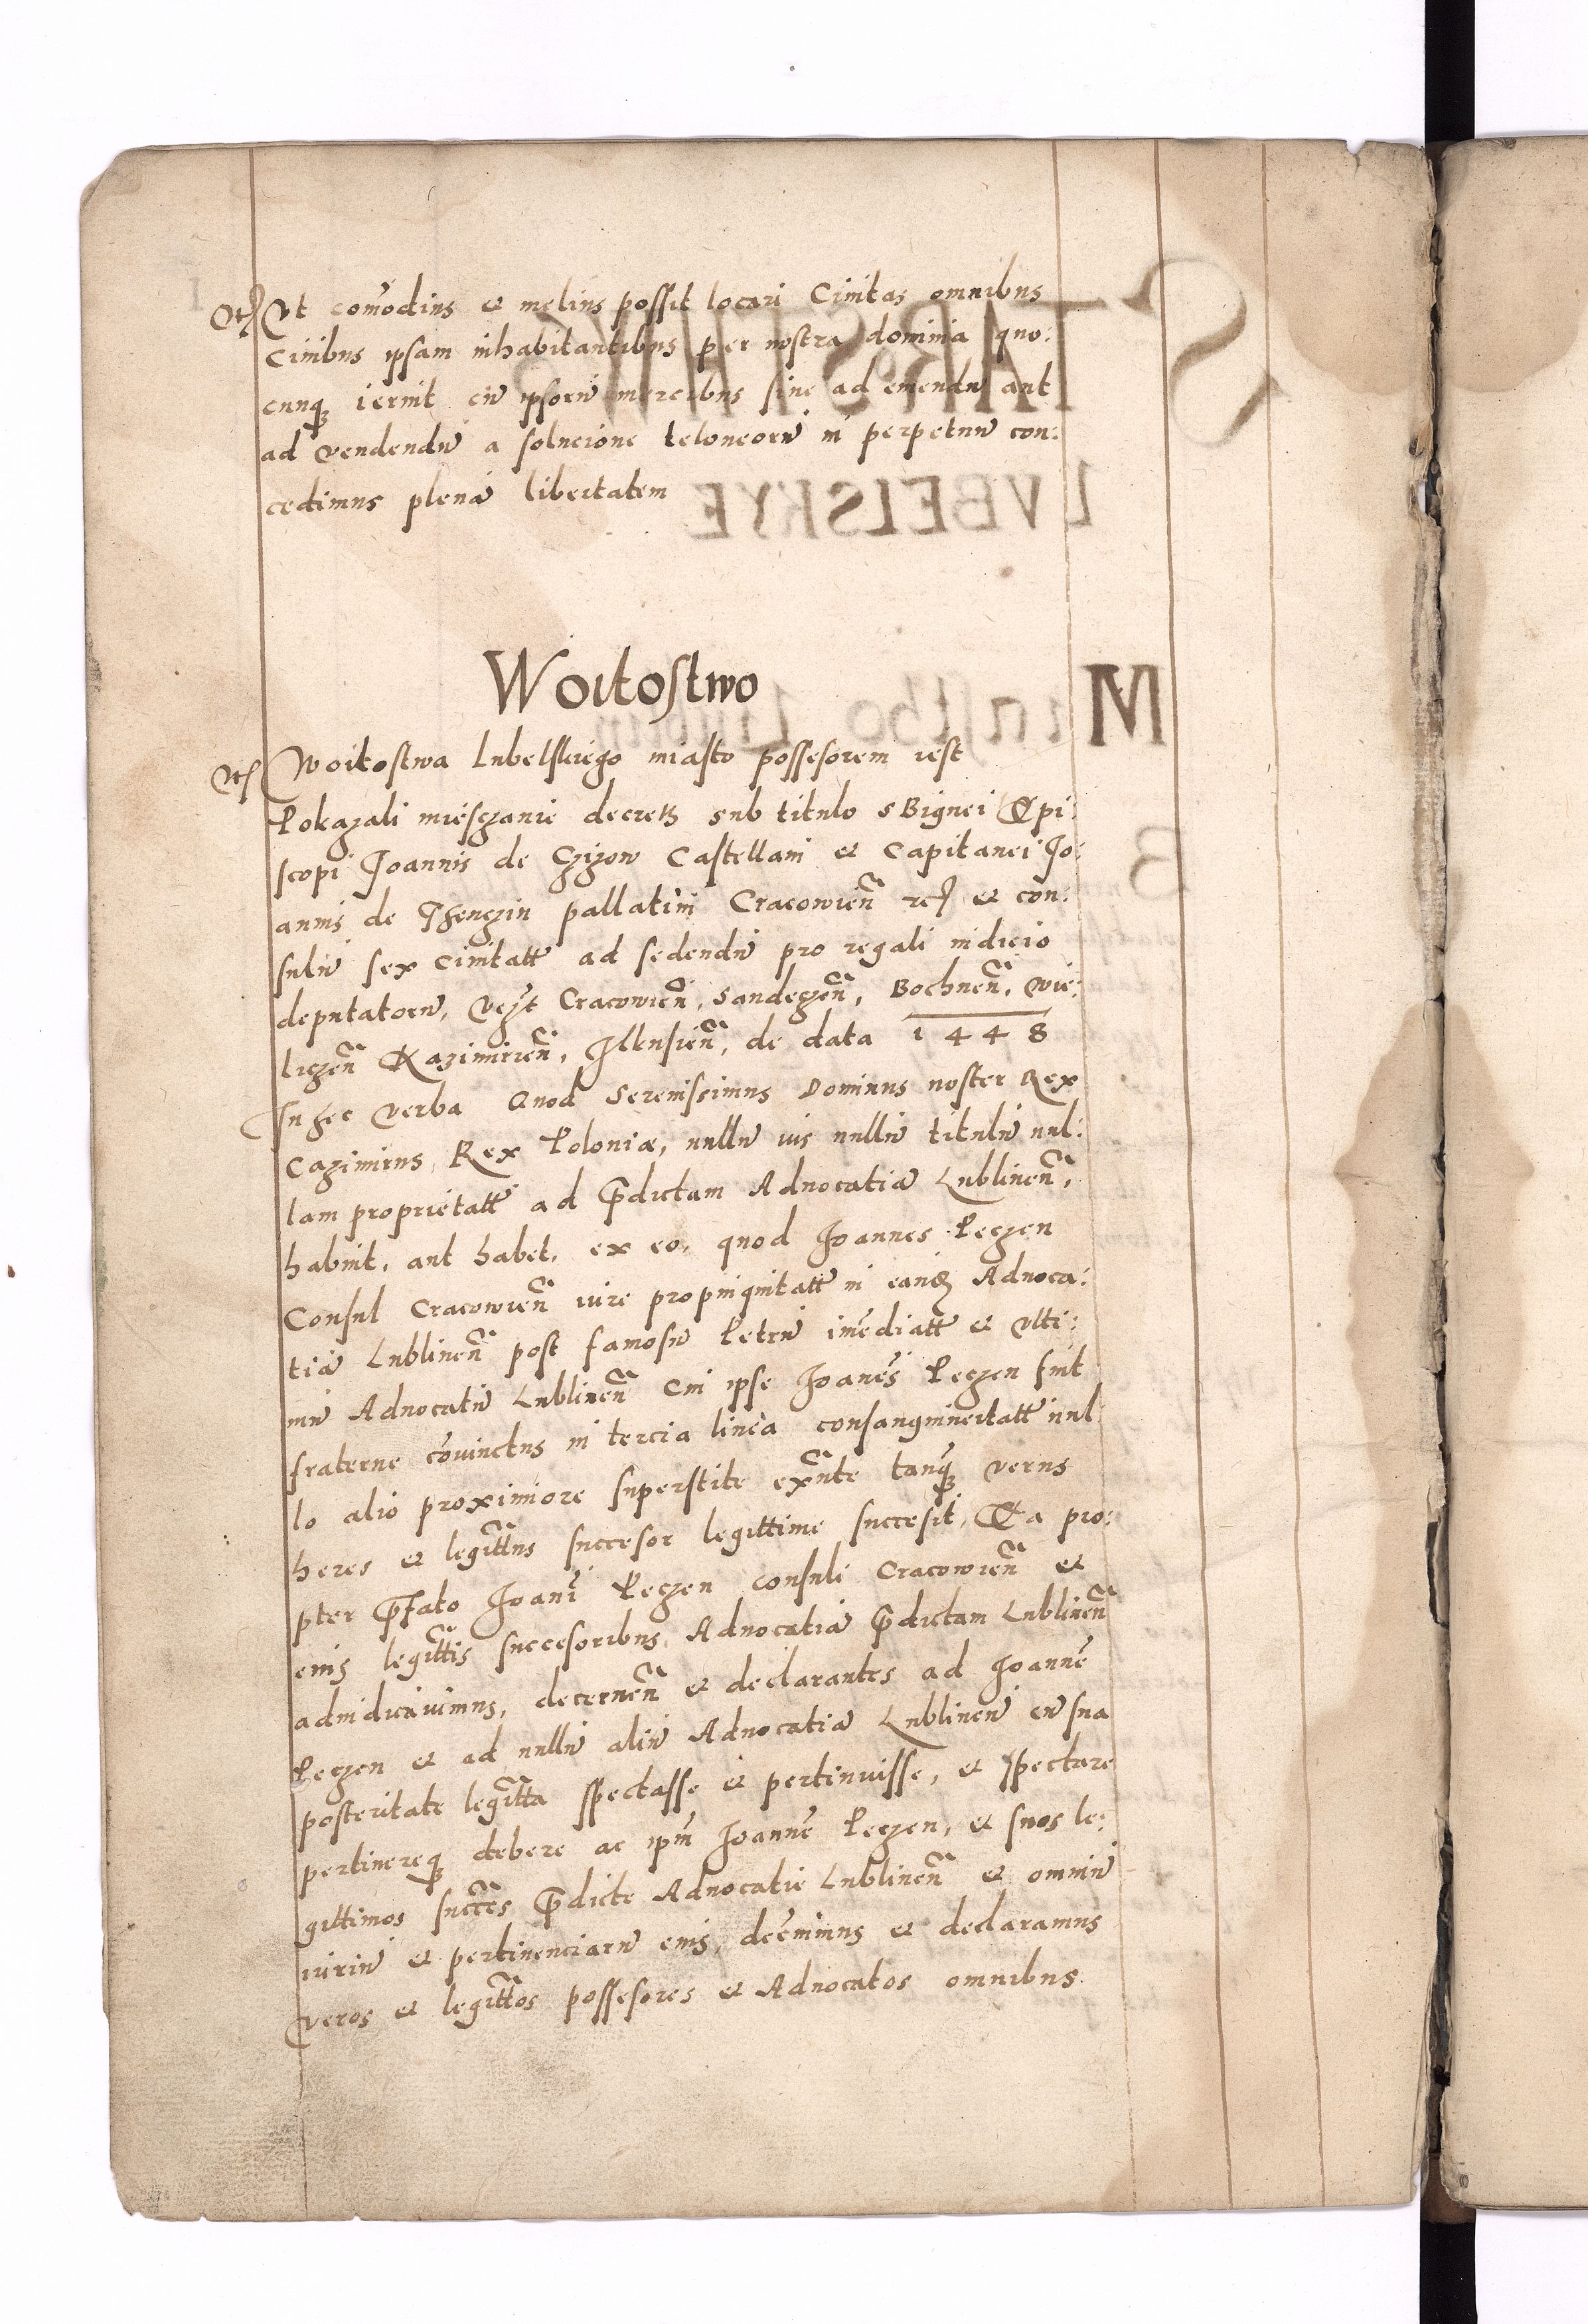 Ut comōdius et melius possit locari Civitas omnibus
Civibus ipsam inhabitantibus per nostra dominia quo:
cunq3 ierint cū ipsorū mercibus sive ad emendū aut
ad vendendū a solucione teloneorū in perpetuū con:
cedimus plenā libertatem
Woitostwo
Woitostwa Lubelskiego miasto possesorem iest
Pokazali miesczanie decretz sub titulo Sbignei Epi:
scopi Joannis de Czizow Castellani et Capitanei Jo:
annis de Thenczin pallatini Cracowieñ et con:
sulū sex Civitatt ad sedendū pro regali iudicio
deputatorū, Cracowieñ, Sandeczeñ, Bochneñ, Wie:
liczeñ Kazimirieñ, Ilkusieñ, de data 1448
In hec verba Quod Serenissimus Dominus noster Rex
Cazimirus, Rex Poloniæ, nullū ius nullū titulū nul:
lam proprietatt ad p̄dictam Advocatiā Lublineñ,
habuit, aut habet, ex eo, quod Joannes Peczen
Consul Cracowieñ iure propinquitatt in eand3 Advoca:
tiā Lublineñ post famosū Petrū imēdiatt et ulti:
mū Advocatū Lublineñ Cui ipse Joanēs Peczen fuit
fraterne cōuinctus in tercia linea consanguineitatt nul:
lo alio proximiore superstite exñte tanq3 verus
heres et legittūs succesor legittime succesit, Ea pro:
pter p̄fato Joanī Peczen Consuli Cracowieñ et
eius legittis succesoribus, Advocatiā p̄dictam Lublineñ
adiudicavimus, decerneñ et declarantes ad Joannē
Peczen et ad nullū aliū Advocatiā Lublineñ cū sua
posteritate legitta spectasse et pertinuisse, et spectare
pertinereq3 debere ac ipm̄ Joannē Peczen, et suos le:
gittimos succēs p̄dicte Advocatie Lublineñ et omniū
iuriū et pertinenciarū eius, decernimus et declaramus
veros et legittos possesores et Advocatos omnibus